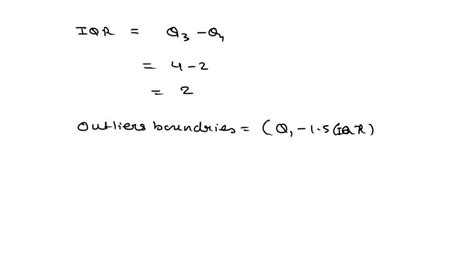 IQR = Q₃ - Q₁
= 4-2
= 2
Outliers boundries = (Q₁ - 1.5(IQR)